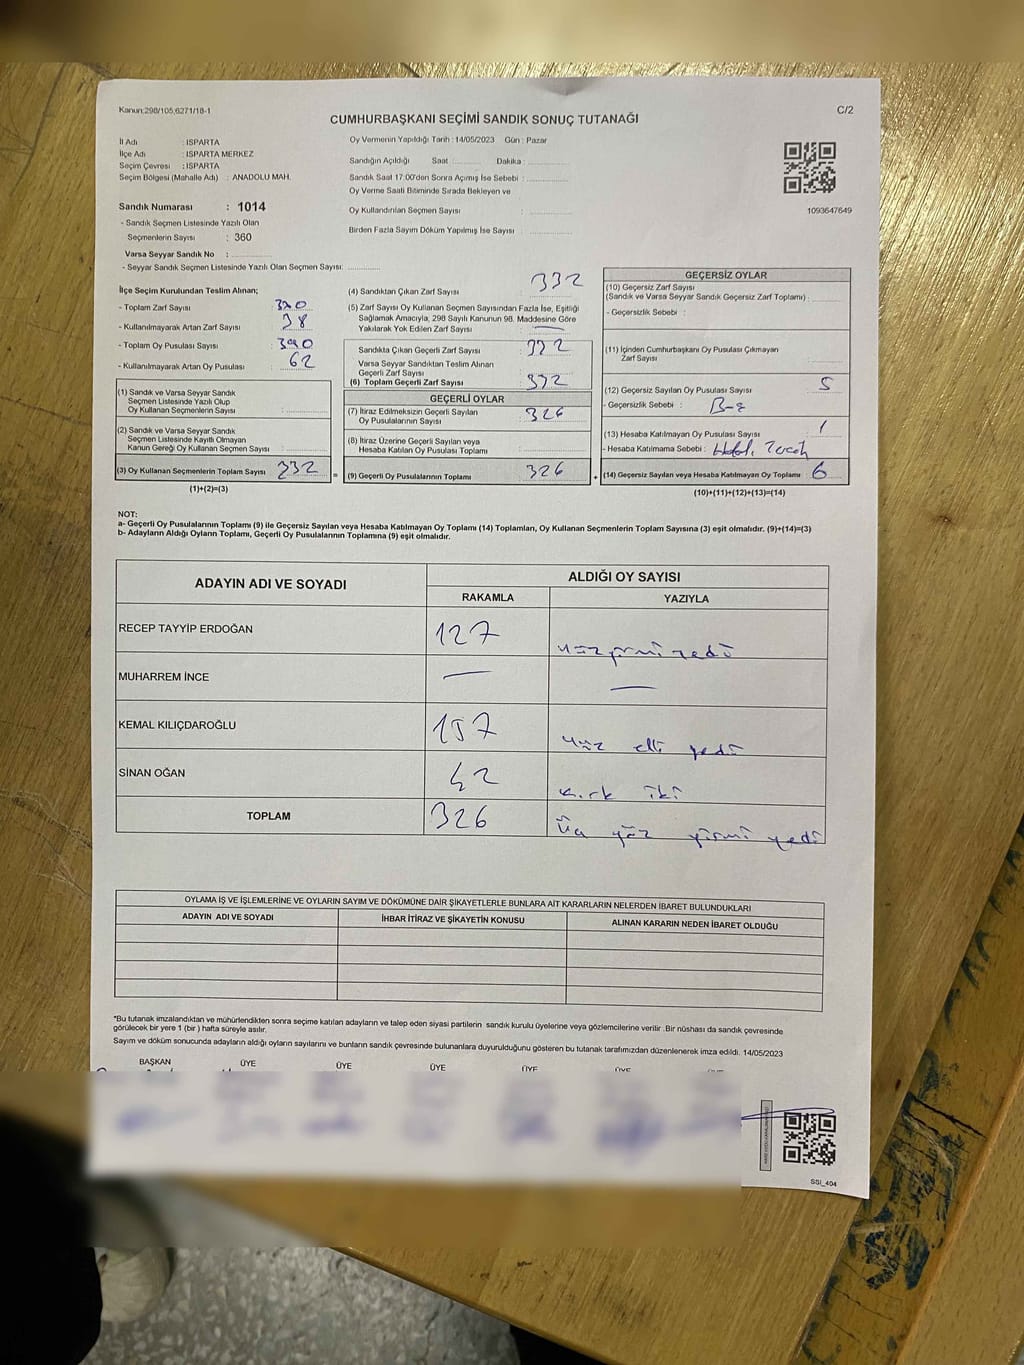 Kanun:298/105,6271/18-1
C/2
CUMHURBAŞKANI SEÇİMİ SANDIK SONUÇ TUTANAĞI
İl Adı : ISPARTA
İlçe Adı : ISPARTA MERKEZ
Seçim Çevresi : ISPARTA
Seçim Bölgesi (Mahalle Adı) : ANADOLU MAH.
Sandık Numarası : 1014
- Sandık Seçmen Listesinde Yazılı Olan
Seçmenlerin Sayısı : 360
Varsa Seyyar Sandık No :
- Seyyar Sandık Seçmen Listesinde Yazılı Olan Seçmen Sayısı:
Oy Vermenin Yapıldığı Tarih : 14/05/2023 Gün : Pazar
Sandığın Açıldığı Saat Dakika :
Sandık Saat 17:00'den Sonra Açımış İse Sebebi :
Oy Verme Saati Bitiminde Sırada Bekleyen ve
Oy Kullandırılan Seçmen Sayısı :
Birden Fazla Sayım Döküm Yapılmış İse Sayısı :
1093647649
İlçe Seçim Kurulundan Teslim Alınan;
- Toplam Zarf Sayısı
- Kullanılmayarak Artan Zarf Sayısı 38
- Toplam Oy Pusulası Sayısı
- Kullanılmayarak Artan Oy Pusulası 62
(1) Sandık ve Varsa Seyyar Sandık
Seçmen Listesinde Yazılı Olup
Oy Kullanan Seçmenlerin Sayısı :
(2) Sandık ve Varsa Seyyar Sandık
Seçmen Listesinde Kayıtlı Olmayan
Kanun Gereği Oy Kullanan Seçmen Sayısı :
(3) Oy Kullanan Seçmenlerin Toplam Sayısı 332
(1)+(2)=(3)
(4) Sandıktan Çıkan Zarf Sayısı : 332
(5) Zarf Sayısı Oy Kullanan Seçmen Sayısından Fazla İse, Eşitliği
Sağlamak Amacıyla, 298 Sayılı Kanunun 98. Maddesine Göre
Yakılarak Yok Edilen Zarf Sayısı : —
Sandıkta Çıkan Geçerli Zarf Sayısı : 332
Varsa Seyyar Sandıktan Teslim Alınan
Geçerli Zarf Sayısı
(6) Toplam Geçerli Zarf Sayısı : 332
GEÇERLİ OYLAR
(7) İtiraz Edilmeksizin Geçerli Sayılan
Oy Pusulalarının Sayısı : 326
(8) İtiraz Üzerine Geçerli Sayılan veya
Hesaba Katılan Oy Pusulası Toplamı
(9) Geçerli Oy Pusulalarının Toplamı : 326
GEÇERSİZ OYLAR
(10) Geçersiz Zarf Sayısı
(Sandık ve Varsa Seyyar Sandık Geçersiz Zarf Toplamı) :
- Geçersizlik Sebebi :
(11) İçinden Cumhurbaşkanı Oy Pusulası Çıkmayan
Zarf Sayısı :
(12) Geçersiz Sayılan Oy Pusulası Sayısı : 5
- Geçersizlik Sebebi :
(13) Hesaba Katılmayan Oy Pusulası Sayısı : 1
- Hesaba Katılmama Sebebi :
(14) Geçersiz Sayılan veya Hesaba Katılmayan Oy Toplamı : 6
(10)+(11)+(12)+(13)=(14)
NOT:
a- Geçerli Oy Pusulalarının Toplamı (9) ile Geçersiz Sayılan veya Hesaba Katılmayan Oy Toplamı (14) Toplamları, Oy Kullanan Seçmenlerin Toplam Sayısına (3) eşit olmalıdır. (9)+(14)=(3)
b- Adayların Aldığı Oyların Toplamı, Geçerli Oy Pusulalarının Toplamına (9) eşit olmalıdır.
ADAYIN ADI VE SOYADI
ALDIĞI OY SAYISI
RAKAMLA YAZIYLA
RECEP TAYYİP ERDOĞAN 127 yüz yirmi yedi
MUHARREM İNCE — —
KEMAL KILIÇDAROĞLU 157 yüz elli yedi
SİNAN OĞAN 42 kırk iki
TOPLAM 326 Üç yüz yirmi yedi
OYLAMA İŞ VE İŞLEMLERİNE VE OYLARIN SAYIM VE DÖKÜMÜNE DAİR ŞİKAYETLERLE BUNLARA AİT KARARLARIN NELERDEN İBARET BULUNDUKLARI
ADAYIN ADI VE SOYADI İHBAR İTİRAZ VE ŞİKAYETİN KONUSU ALINAN KARARIN NEDEN İBARET OLDUĞU
*Bu tutanak imzalandıktan ve mühürlendikten sonra seçime katılan adayların ve talep eden siyasi partilerin sandık kurulu üyelerine veya gözlemcilerine verilir .Bir nüshası da sandık çevresinde
görülecek bir yere 1 (bir ) hafta süreyle asılır.
Sayım ve döküm sonucunda adayların aldığı oyların sayılarını ve bunların sandık çevresinde bulunanlara duyurulduğunu gösteren bu tutanak tarafımızdan düzenlenerek imza edildi. 14/05/2023
BAŞKAN ÜYE ÜYE ÜYE ÜYE ÜYE
SSI_404